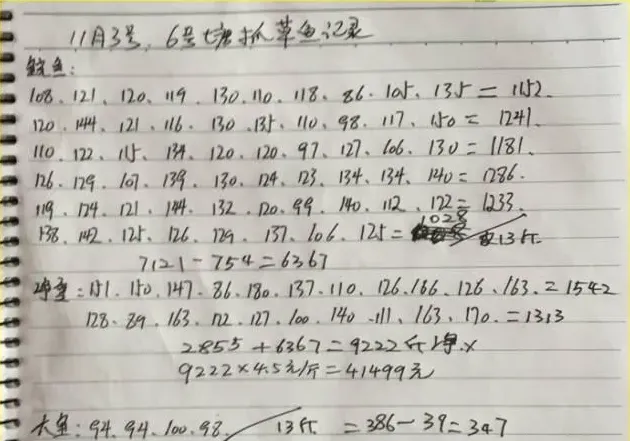 11月3号、6号塘抓草鱼记录
鲩鱼:
108、121、120、119、130、110、118、86、105、135=1152.
120、144、121、116、130、135、110、98、117、150=1241.
110、122、115、134、120、120、97、127、106、130=1181、
126、129、107、139、130、124、123、134、134、140=1286.
119、124、121、144、132、120、99、140、112、122=1233.
138、142、125、126、129、137、106、125=1028 13斤
7121-754=6367
净重:151、150、147、86、180、137、110、126、166、126、163、=1542
128、89、163、122、127、100、140、111、163、170、=1313
2855+6367=9222斤净
9222×4.5元/斤=41499元
大鱼:94、94、100、98、 13斤 =386-39=347